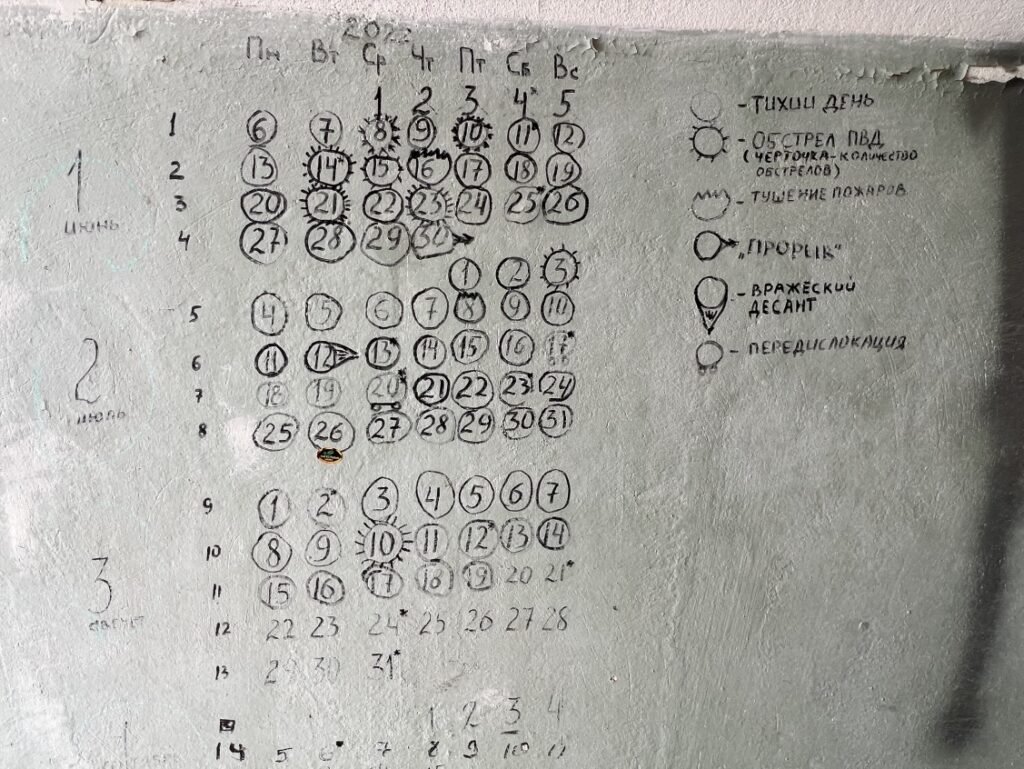 2022
Пн Вт Ср Чт Пт Сб Вс
1 2 3 4* 5
1 6 7 8 9 10 11* 12
2 13 14* 15 16 17 18 19
3 20 21 22 23 24 25* 26
4 27 28 29 30
1 2 3
5 4 5 6 7 8 9 10
6 11 12 13* 14 15 16 17*
7 18 19 20* 21 22 23* 24
8 25 26 27 28 29 30 31
9 1 2* 3 4 5 6 7
10 8 9 10 11 12* 13 14
11 15 16 17 18* 19 20 21*
12 22 23 24* 25 26 27 28
13 29 30 31*
1 2 3 4
14 5 6* 7 8 9 10 11
1
июнь
2
июль
3
август
- ТИХИЙ ДЕНЬ
- ОБСТРЕЛ ПВД
(ЧЕРТОЧКА-КОЛИЧЕСТВО
ОБСТРЕЛОВ)
- ТУШЕНИЕ ПОЖАРОВ
- „ПРОРЫВ"
- ВРАЖЕСКИЙ
ДЕСАНТ
- ПЕРЕДИСЛОКАЦИЯ